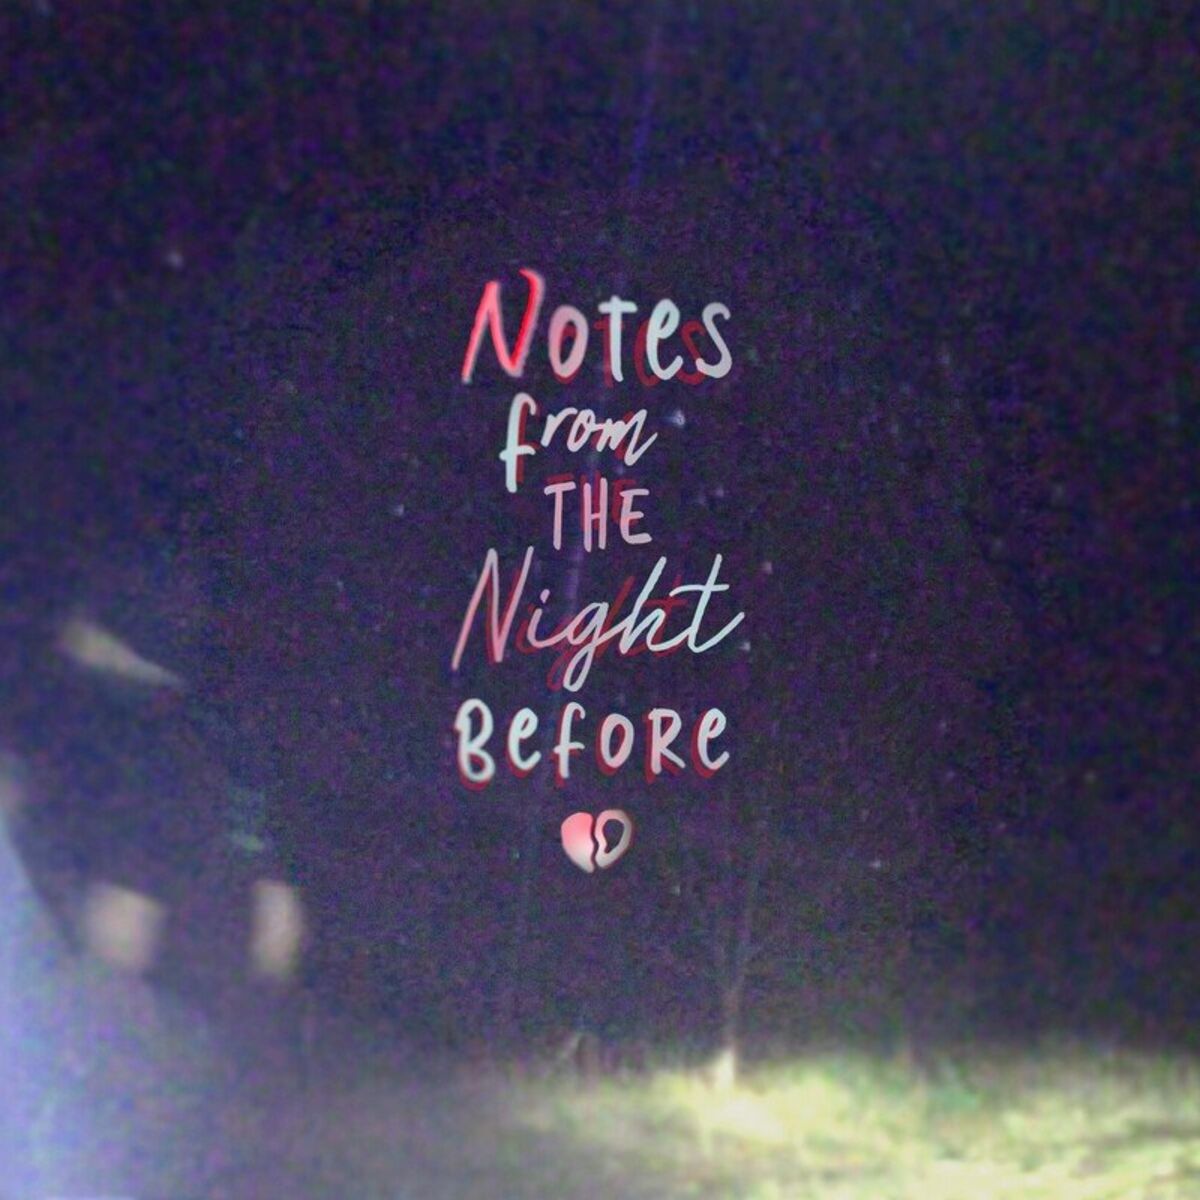 Notes
from
THE
Night
Before